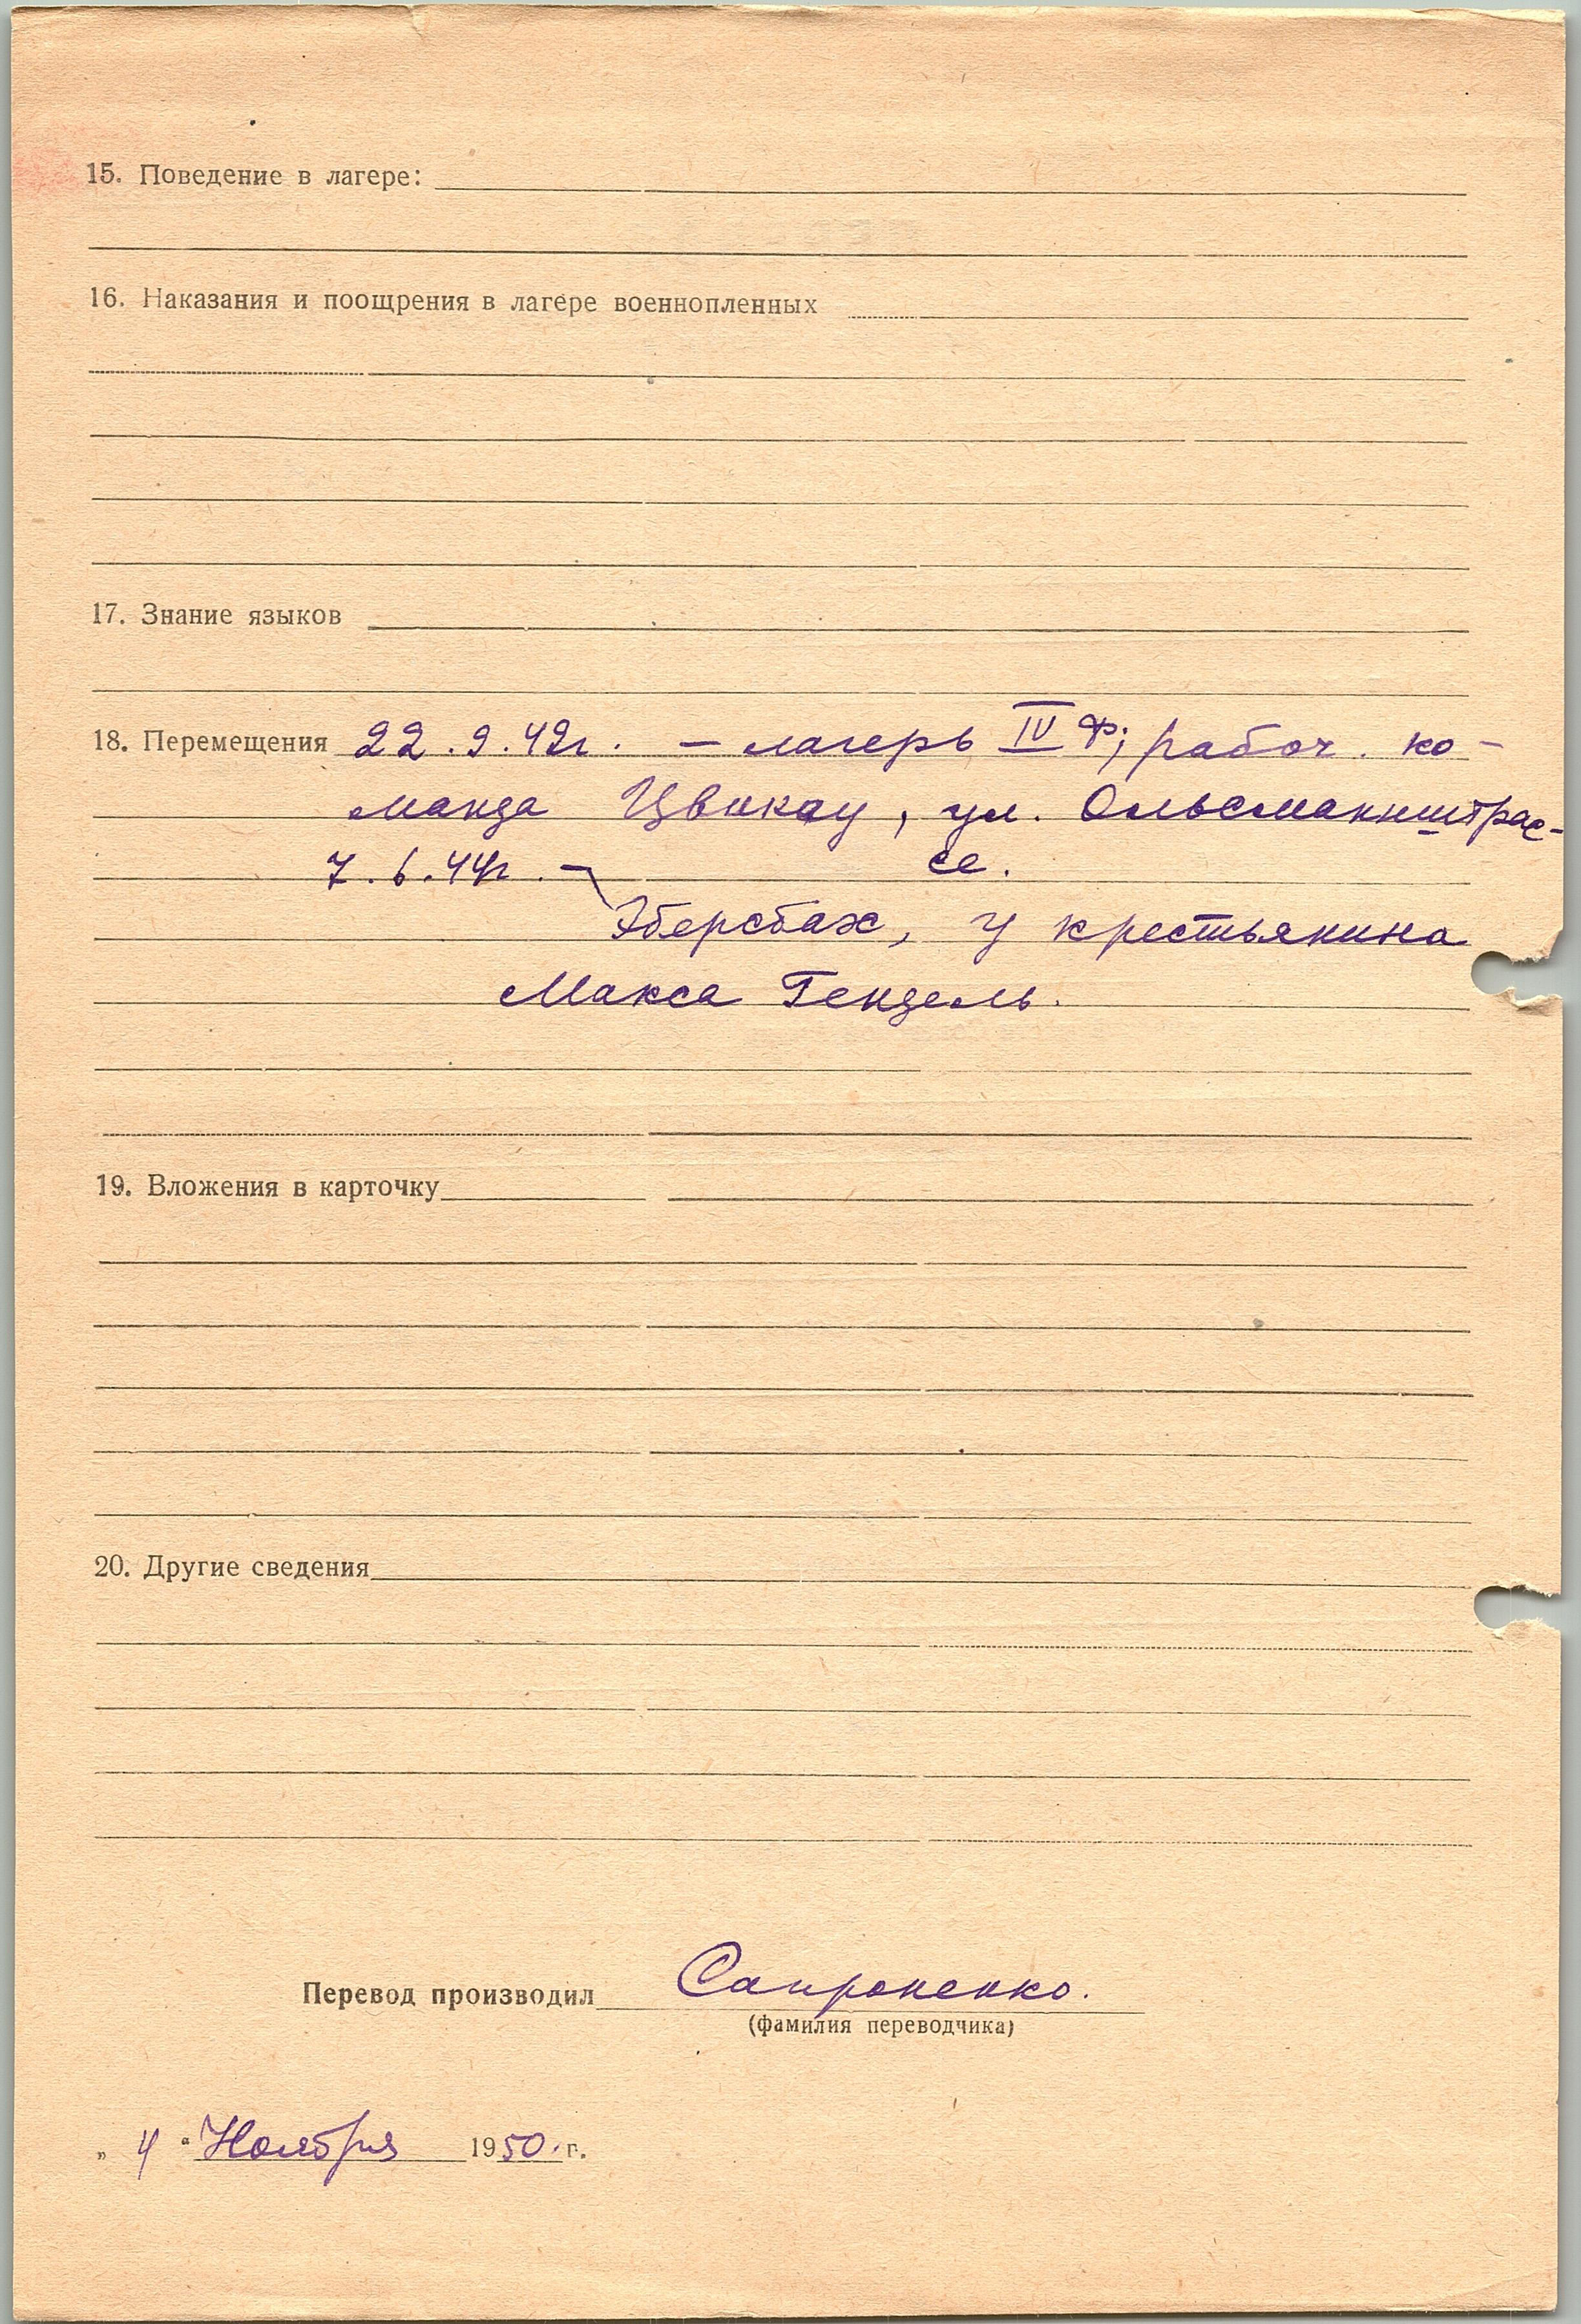 15. Поведение в лагере:
16. Наказания и поощрения в лагере военнопленных
17. Знание языков
18. Перемещения 22.9.42г. – лагерь IV Ф; рабоч. ко-
манда Цвикау, ул. Ольсманнштрас-
7.6.44г. – се.
Эберсбах, у крестьянина
Макса Гендель.
19. Вложения в карточку
20. Другие сведения
Перевод производил Сапроненко.
(фамилия переводчика)
„ 4 “ Ноября 1950. г.